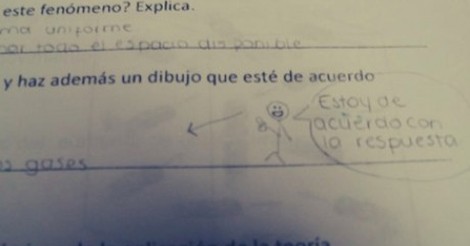 este fenómeno? Explica.
ma uniforme
por todo el espacio disponible
y haz además un dibujo que esté de acuerdo
Estoy de
acuerdo con
la respuesta
gases